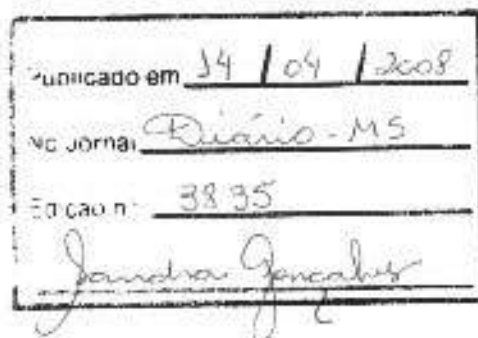 Publicado em 14 / 04 / 2008
No Jornal Diário - MS
Edição n.º 3835
Sandra Gonçalves